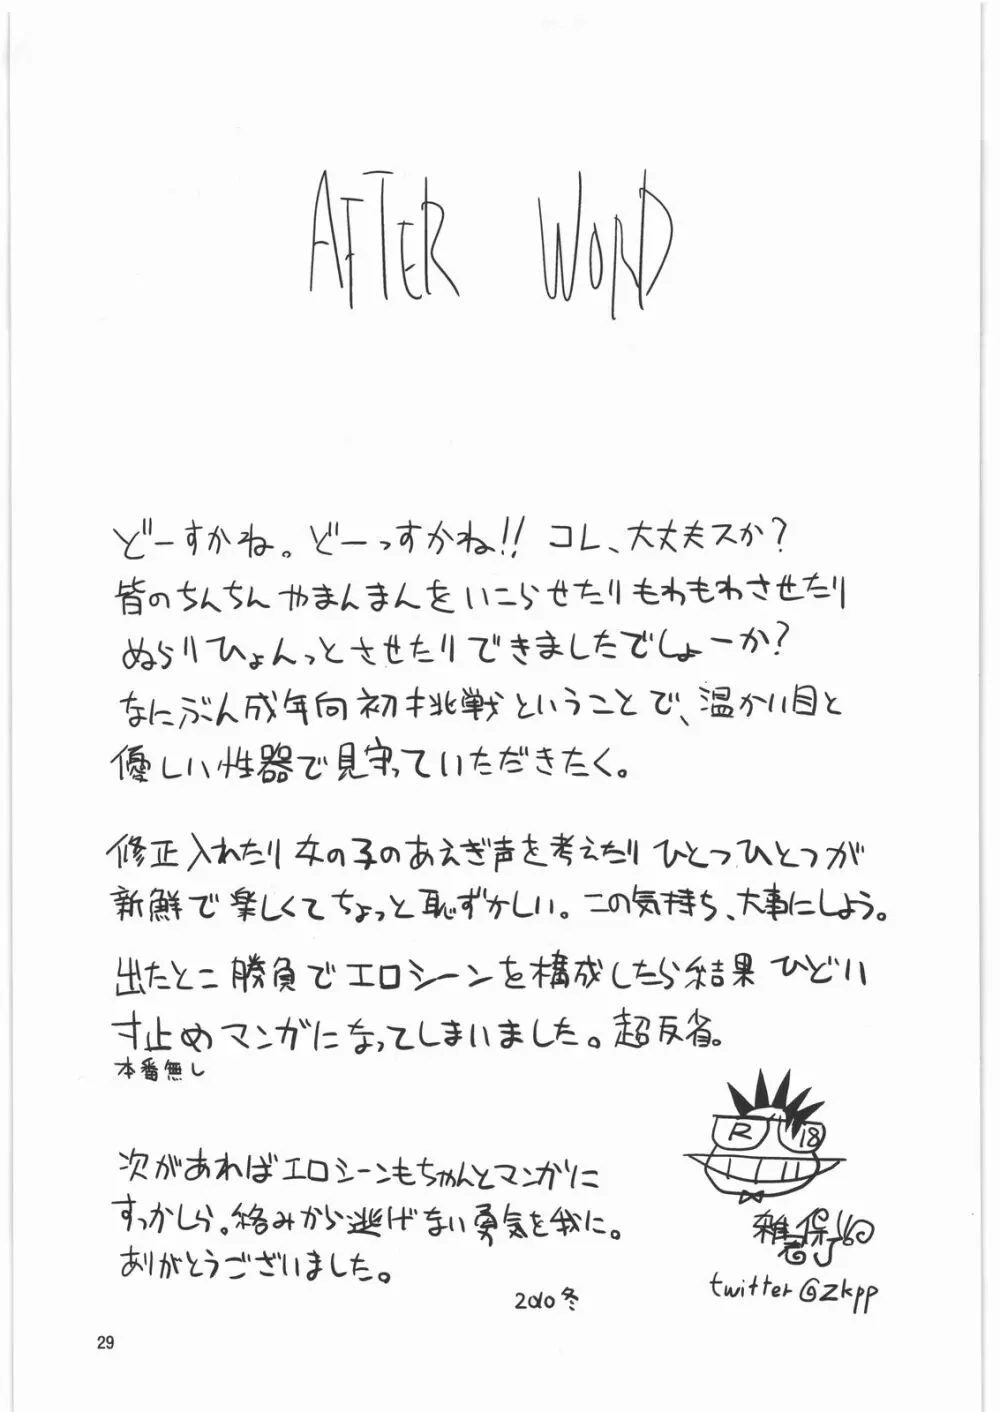 AFTER WORD
どーすかね。どーっすかね!! コレ、大丈夫スか?
皆のちんちんやまんまんをいこらせたりもわもわさせたり
ぬらりひょんっとさせたりできましたでしょーか?
なにぶん成年向初挑戦ということで、温かい目と
優しい性器で見守っていただきたく。
修正入れたり女の子のあえぎ声を考えたりひとつひとつが
新鮮で楽しくてちょっと恥ずかしい。この気持ち、大事にしよう。
出たとこ勝負でエロシーンを構成したら結果ひどい
寸止めマンガになってしまいました。超反省。
本番無し
R 18
次があればエロシーンもちゃんとマンガりに
すっかしら。絡みから逃げない勇気を我に。
ありがとうございました。
2010冬
twitter@zkpp
29